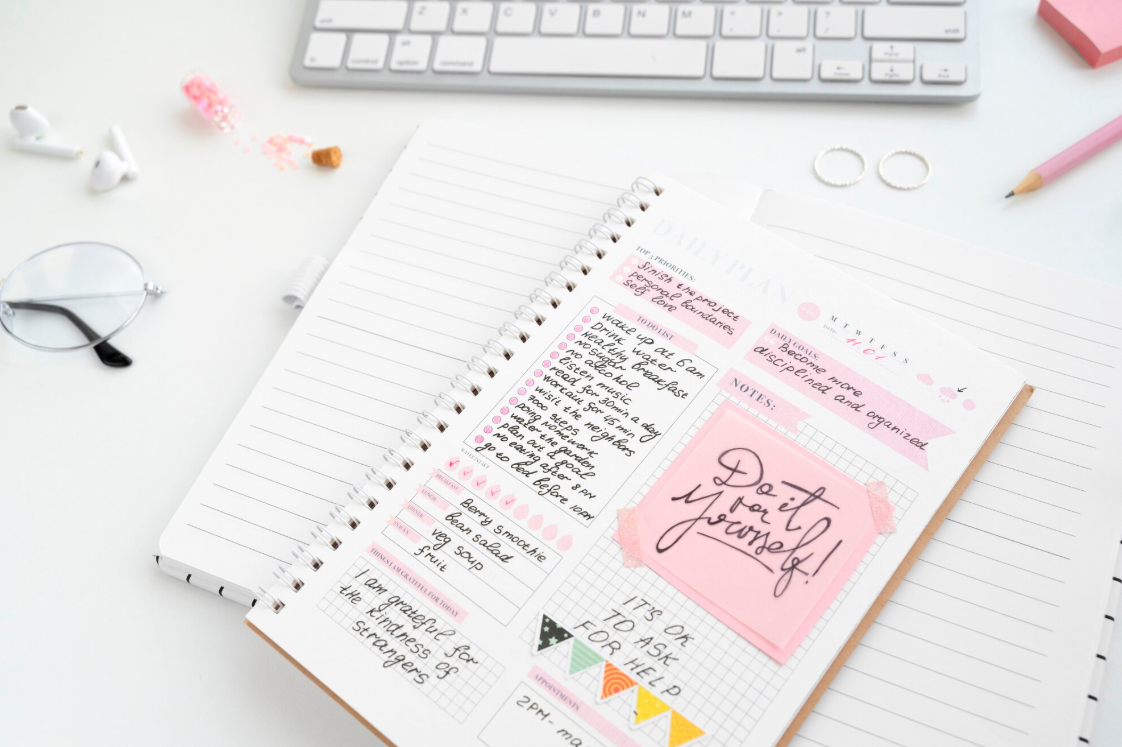 Z X C V B N M
shift
control
alt
option
command
alt
DAILY PLAN
TOP 3 PRIORITIES:
finish the project
personal boundaries
self love
M T W T F S S
DATE:
11.01
TO DO LIST
wake up at 6 am
Drink water
Healthy breakfast
no sugar
no alcohol
listen music
read for 30min a day
workout for 45 min
wisit the neighbors
7000 steps
doing homework
water the garden
plan out a goal
no eating after 8 PM
go to bed before 10PM
DAILY GOALS:
Become more
disciplined and organized
NOTES:
Do it
for
Yourself!
IT'S OK
TO ASK
FOR HELP
BREAKFAST
Berry smoothie
LUNCH
bean salad
DINNER
veg soup
SNACKS
fruit
THINGS I AM GRATEFUL FOR TODAY
I am grateful for
the kindness of
strangers
APPOINTMENTS
2PM - ma